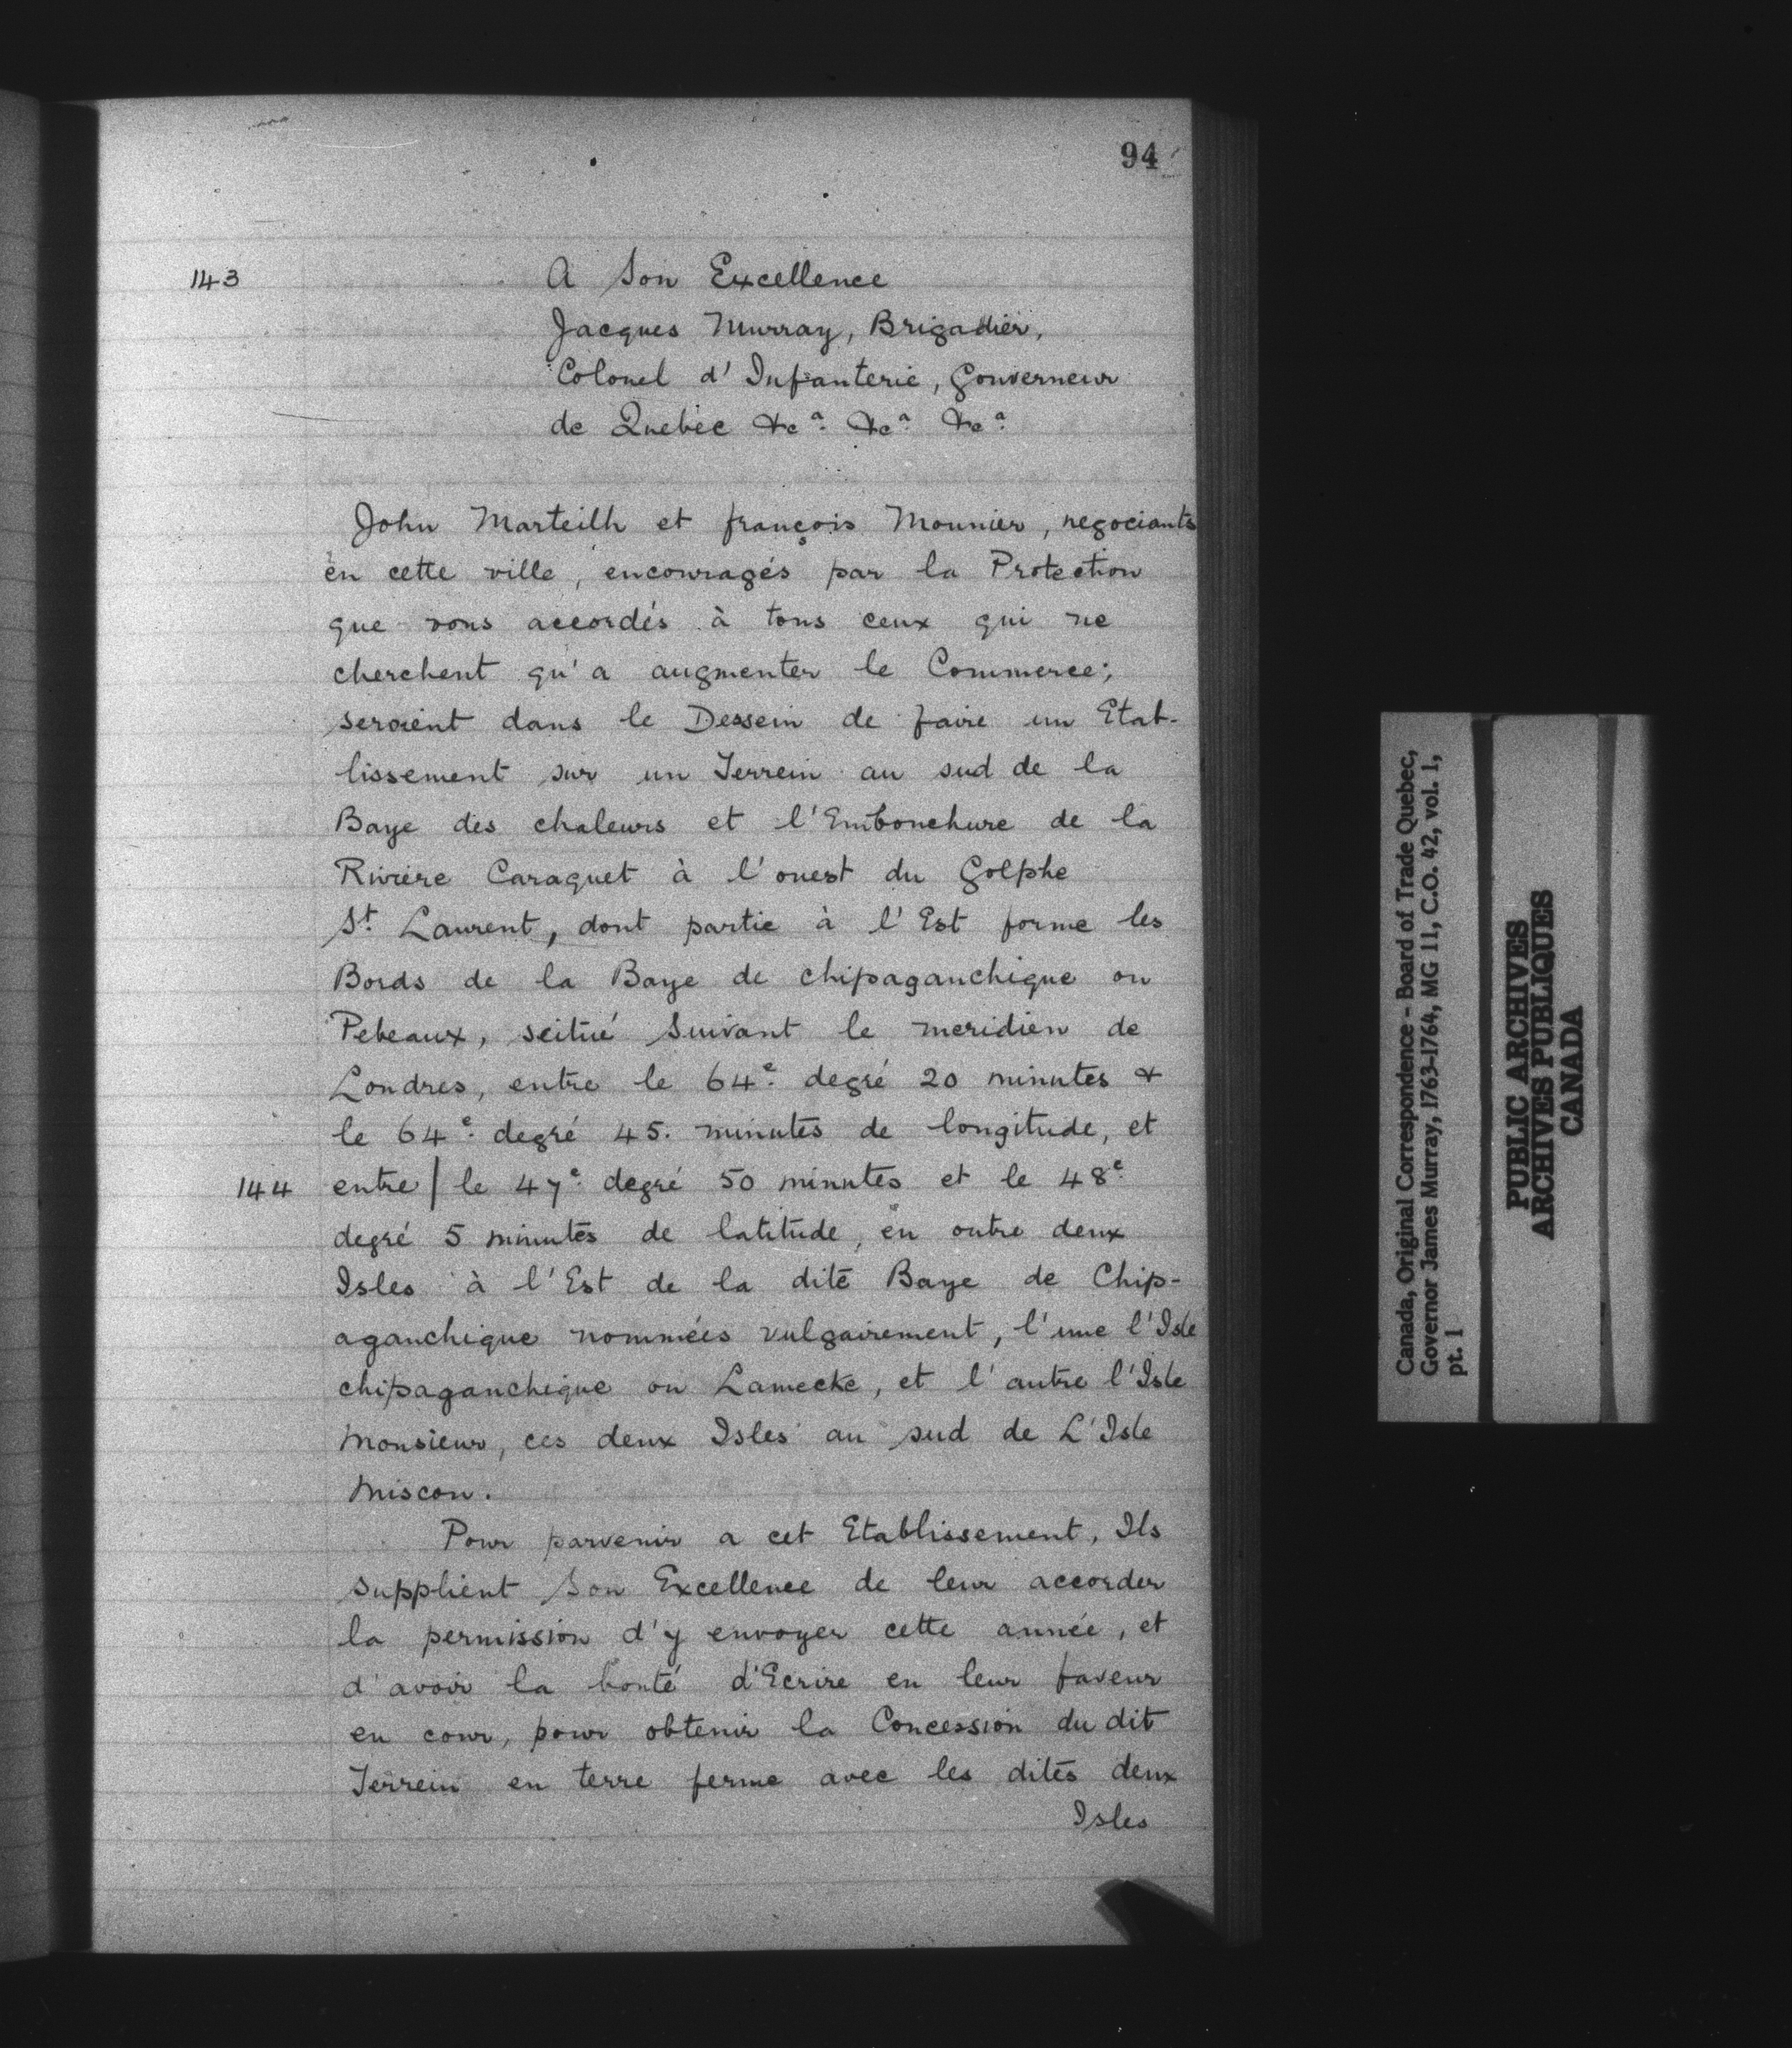 94
143 A Son Excellence
Jacques Murray, Brigadier,
Colonel d'Infanterie, Gouverneur
de Quebec &cª. &cª. &cª.
John Marteilh et françois Mounier, negociants
en cette ville, encouragés par la Protection
que vous accordés à tous ceux qui ne
cherchent qu'a augmenter le Commerce;
seroient dans le Dessein de faire un Etab-
lissement sur un Terrein au sud de la
Baye des chaleurs et l'Embouchure de la
Riviere Caraquet à l'ouest du Golphe
St. Laurent, dont partie à l'Est forme les
Bords de la Baye de chipaganchique ou
Pebeaux, seitué Suivant le meridien de
Londres, entre le 64e. degré 20 minutes &
le 64e. degré 45. minutes de longitude, et
144 entre / le 47e. degré 50 minutes et le 48e.
degré 5 minutes de latitude, en outre deux
Isles à l'Est de la dite Baye de Chip-
aganchique nommées vulgairement, l'une l'Isle
chipaganchique ou Lamecke, et l'autre l'Isle
Monsieur, ces deux Isles au sud de L'Isle
Miscou.
Pour parvenir a cet Etablissement, Ils
supplient Son Excellence de leur accorder
la permission d'y envoyer cette année, et
d'avoir la bonté d'Ecrire en leur faveur
en cour, pour obtenir la Concession du dit
Terrein en terre ferme avec les dites deux
Isles
Canada, Original Correspondence - Board of Trade Quebec,
Governor James Murray, 1763-1764, MG 11, C.O. 42, vol. 1,
pt. 1
PUBLIC ARCHIVES
ARCHIVES PUBLIQUES
CANADA